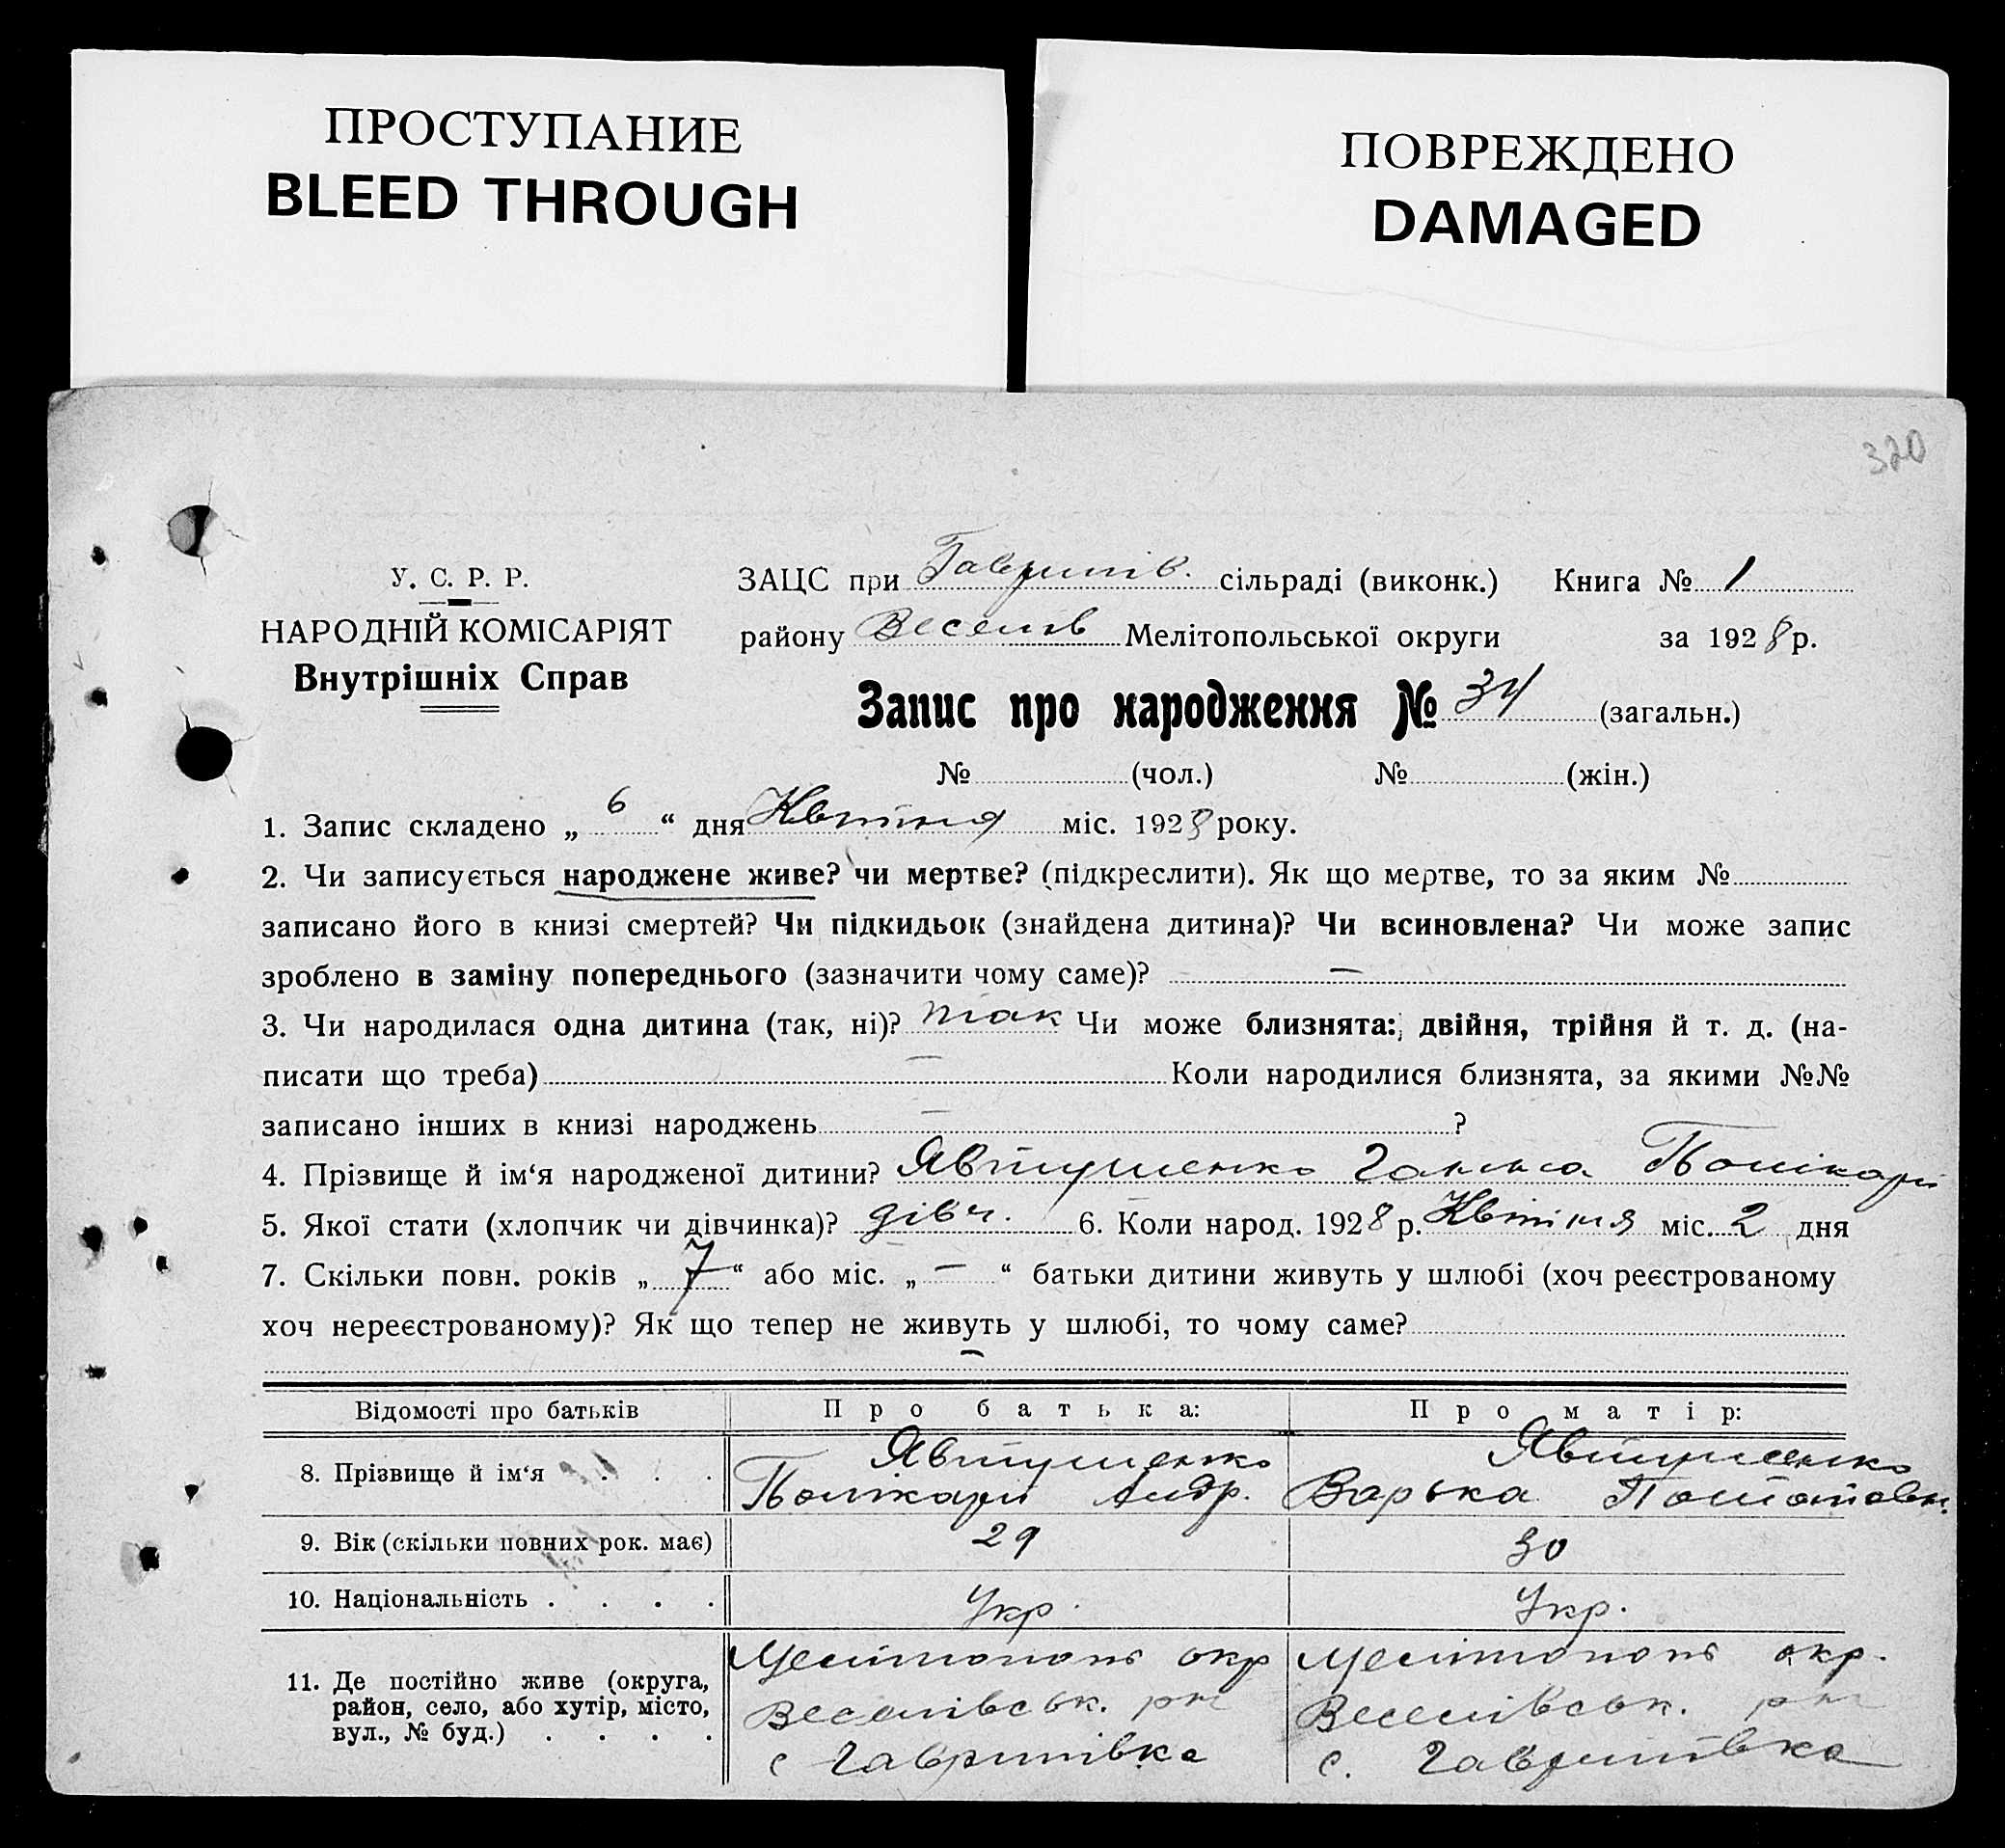 ПРОСТУПАНИЕ
BLEED THROUGH
ПОВРЕЖДЕНО
DAMAGED
320
У. С. Р. Р.
НАРОДНІЙ КОМІСАРІЯТ
Внутрішніх Справ
ЗАЦС при Гаврилів. сільраді (виконк.) Книга № 1
району Веселів Мелітопольської округи за 1928 р.
Запис про народження № 34 (загальн.)
№ (чол.) № (жін.)
1. Запис складено „ 6 “ дня Квітня міс. 1928 року.
2. Чи записується народжене живе? чи мертве? (підкреслити). Як що мертве, то за яким №
записано його в книзі смертей? Чи підкидьок (знайдена дитина)? Чи всиновлена? Чи може запис
зроблено в заміну попереднього (зазначити чому саме)? —
3. Чи народилася одна дитина (так, ні)? так Чи може близнята: двійня, трійня й т. д. (на-
писати що треба) — Коли народилися близнята, за якими №№
записано інших в книзі народжень — ?
4. Прізвище й ім‘я народженої дитини? Явтушенко Ганна Полікарп
5. Якої стати (хлопчик чи дівчинка)? дівч. 6. Коли народ. 1928 р. Квітня міс. 2 дня
7. Скільки повн. років „ 7 “ або міс. „ — “ батьки дитини живуть у шлюбі (хоч реєстрованому
хоч нереєстрованому)? Як що тепер не живуть у шлюбі, то чому саме?
—
Відомості про батьків Про батька: Про матір:
8. Прізвище й ім‘я . . . Явтушенко Полікарп Андр. Явтушенко Варька
9. Вік (скільки повних рок. має) 29 30
10. Національність . . . . Укр. Укр.
11. Де постійно живе (округа, район, село, або хутір, місто, вул., № буд.) . . . .
Мелітополь окр
Веселівськ. рн
с Гаврилівка
Мелітополь окр.
Веселівськ. рн
с. Гаврилівка